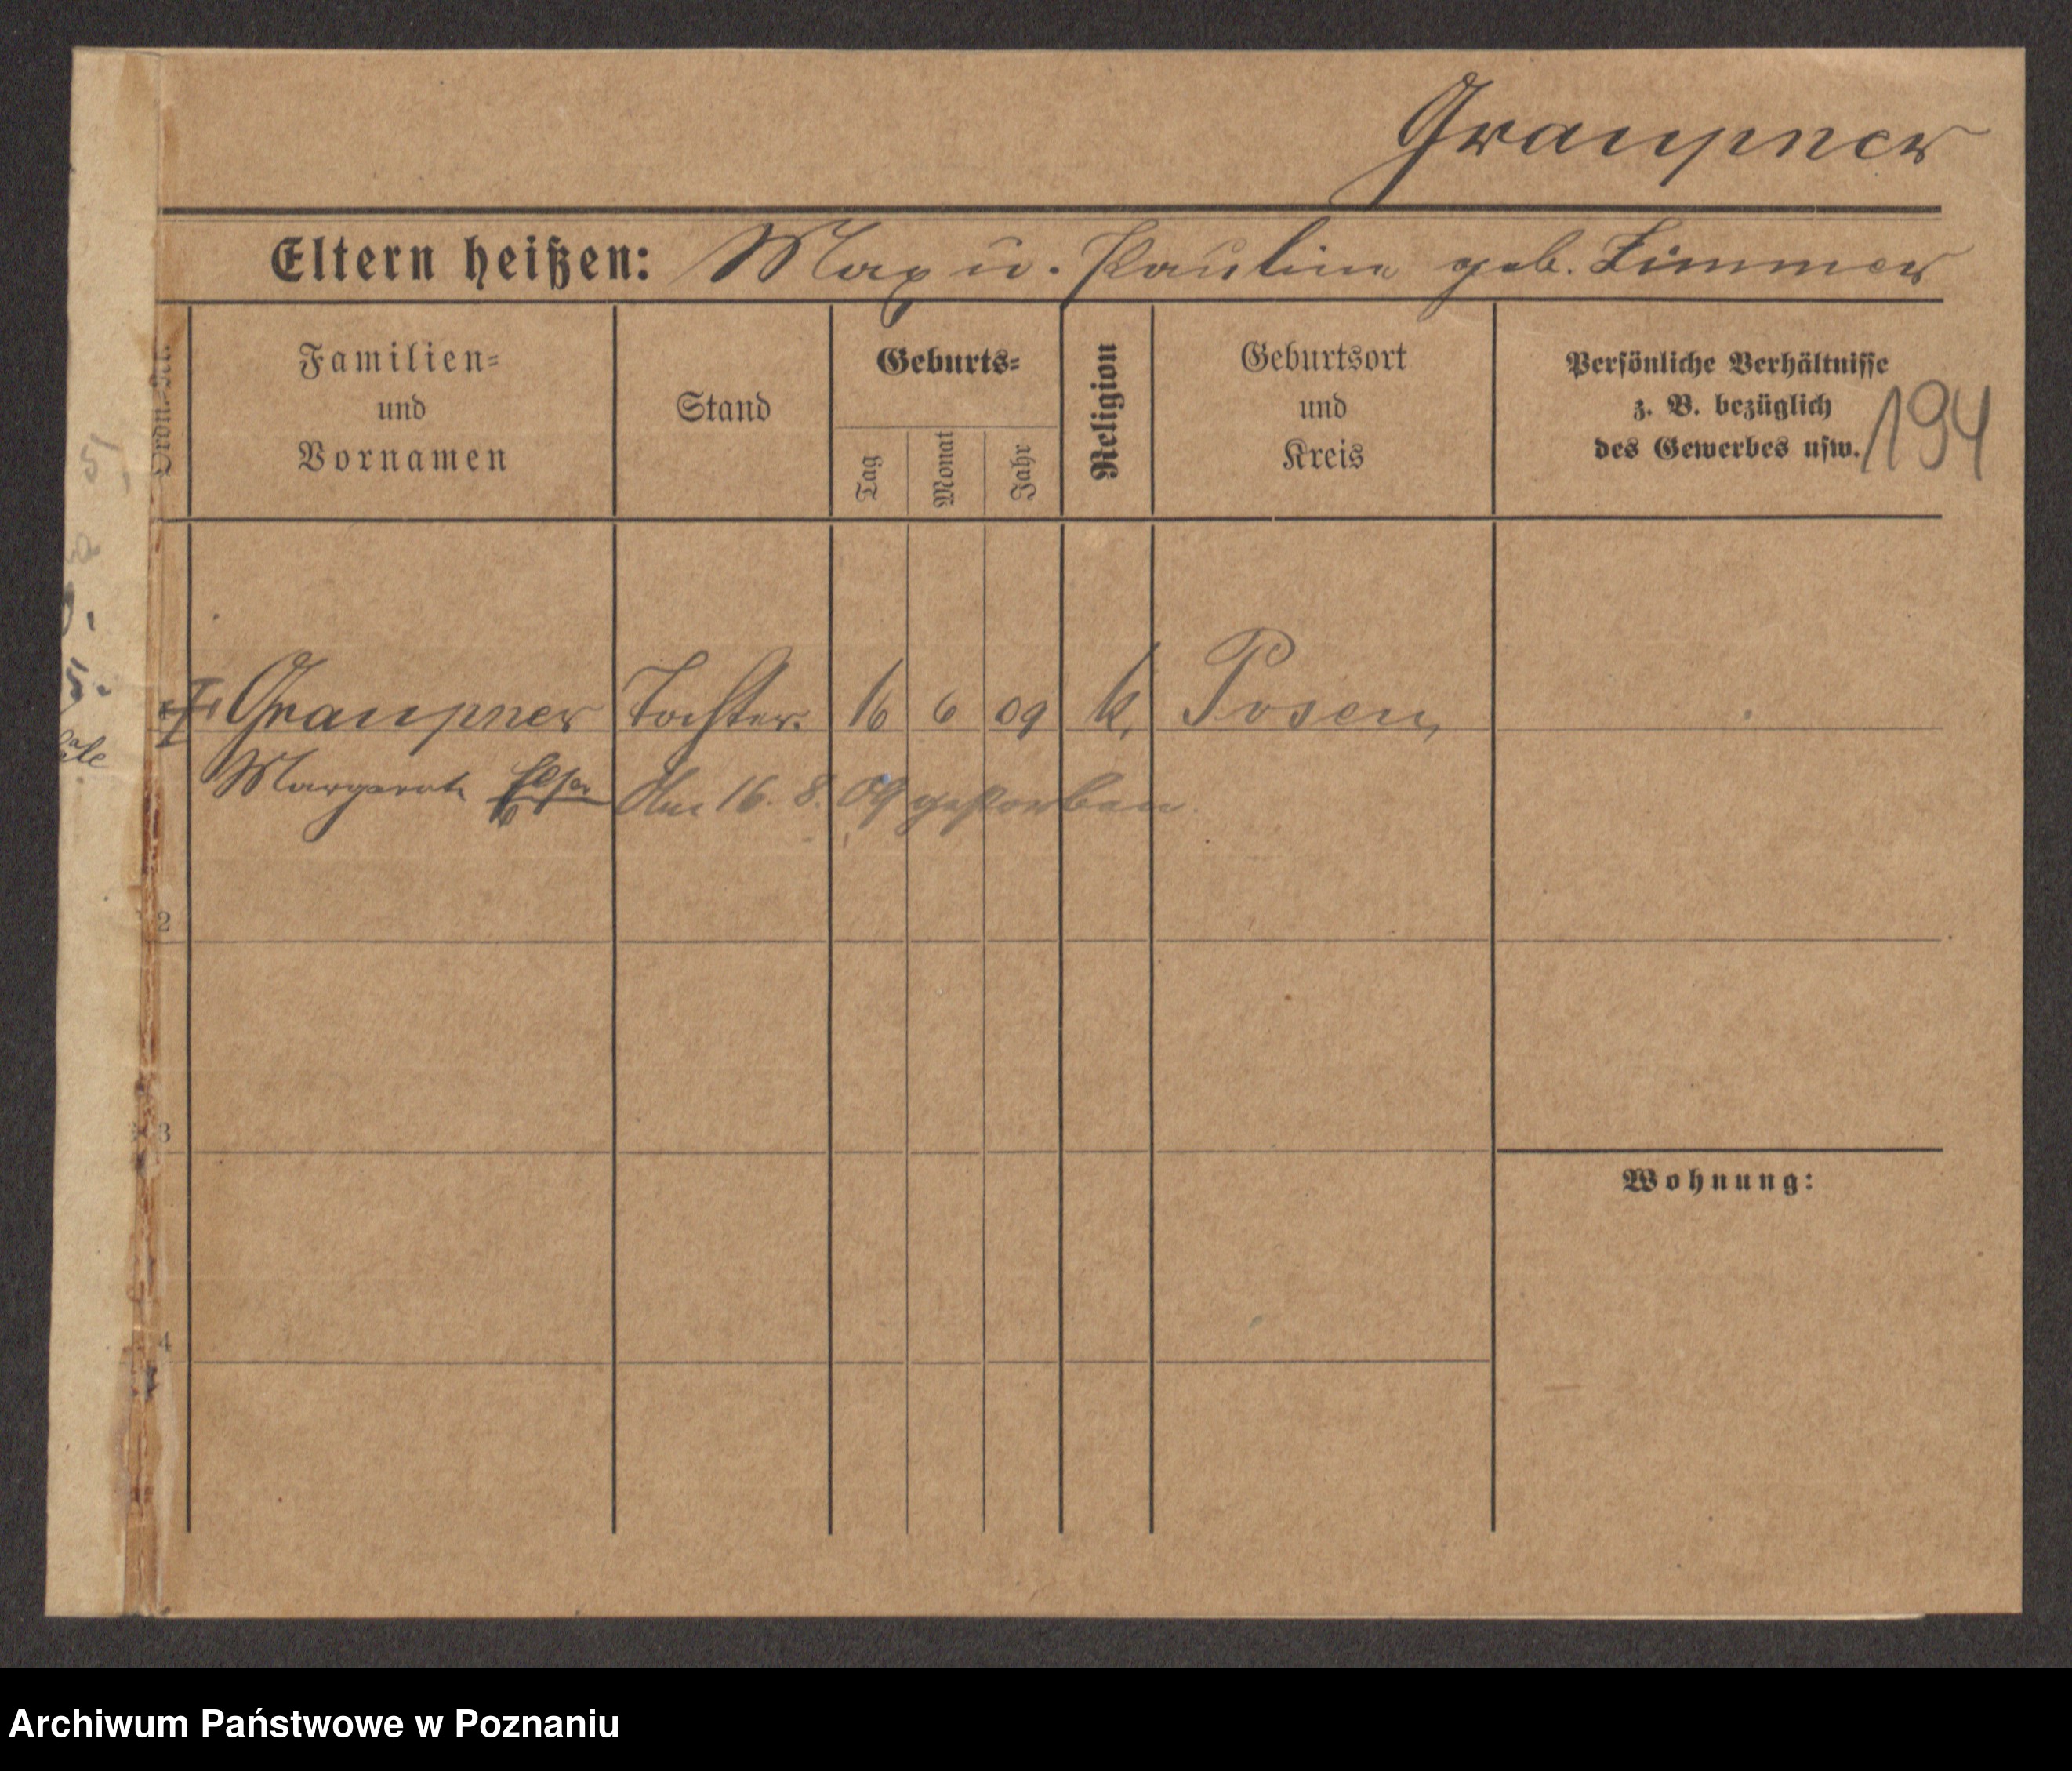 Graupner
Eltern heißen: Max u. Pauline geb. Zimmer
Ordn.-Nr.
Familien-
und
Vornamen
Stand
Geburts-
Tag
Monat
Jahr
Religion
Geburtsort
und
Kreis
Persönliche Verhältnisse
z. B. bezüglich
des Gewerbes usw.
194
5,
5.
Graupner Tochter. 16 6 09 k. Posen,
Margarete Elsa
Am 16. 8. 09 gestorben
2
3
4
Wohnung:
Archiwum Państwowe w Poznaniu